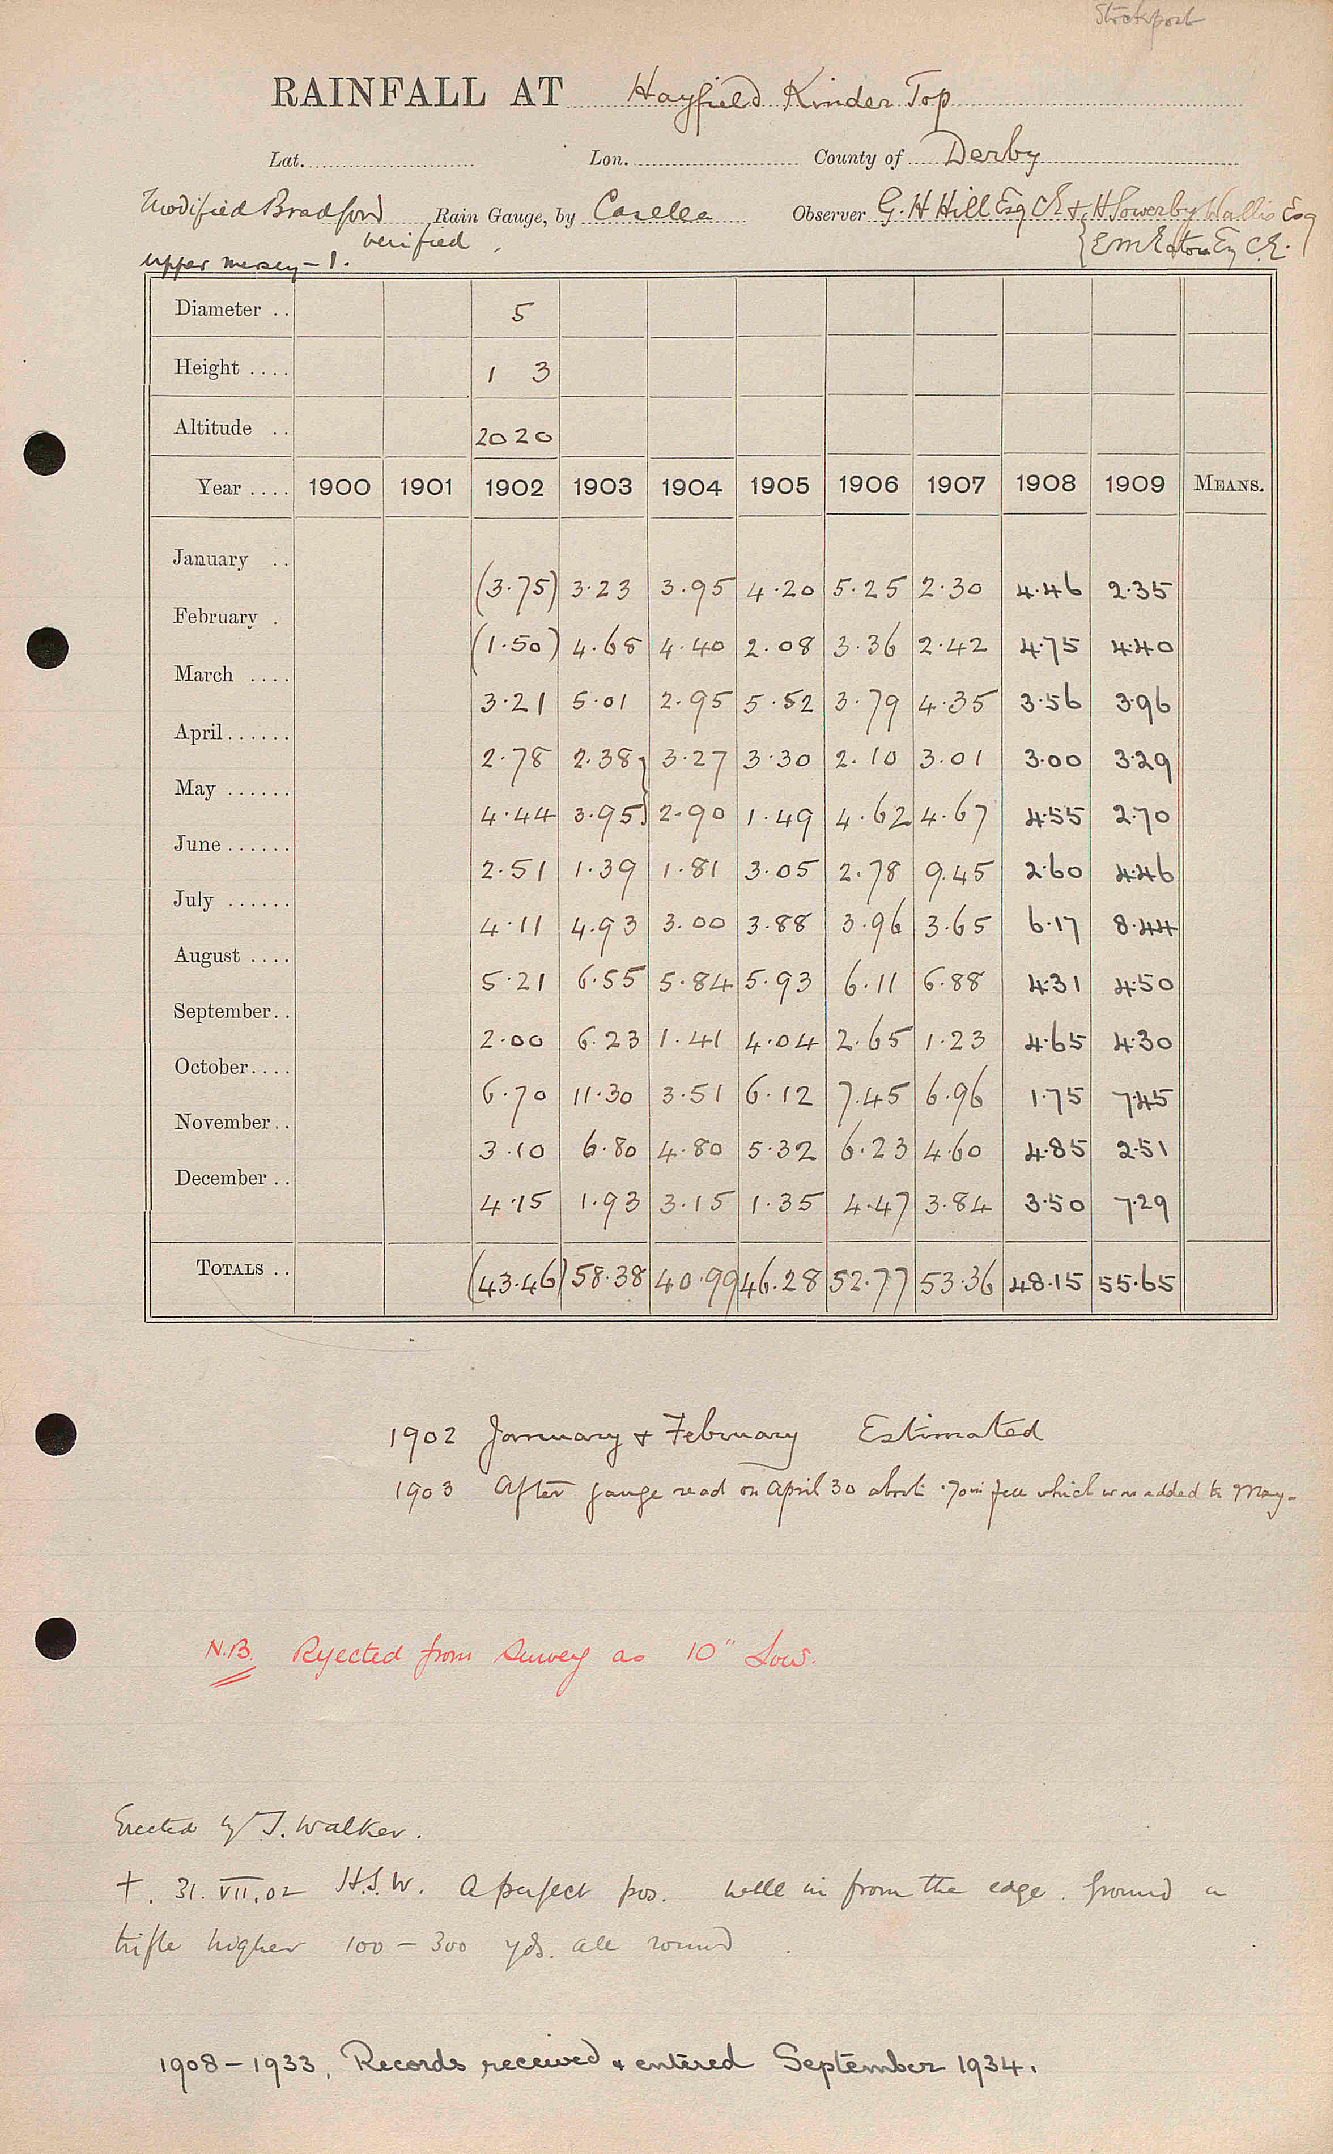 Stockport
RAINFALL AT Hayfield Kinder Top
Lat. Lon. County of Derby
Modified Bradford Rain Gauge, by Casella Observer G. H Hill Esq CE & H Sowerby Wallis Esq
verified { E M Eaton Esq C.E.
Upper Mersey - 1.
Diameter .. 5
Height .... 1 3
Altitude .. 2020
Year .... 1900 1901 1902 1903 1904 1905 1906 1907 1908 1909 MEANS.
January .. (3.75) 3.23 3.95 4.20 5.25 2.30 4.46 2.35
February . (1.50) 4.68 4.40 2.08 3.36 2.42 4.75 4.40
March .... 3.21 5.01 2.95 5.52 3.79 4.35 3.56 3.96
April...... 2.78 2.38} 3.27 3.30 2.10 3.01 3.00 3.29
May ...... 4.44 3.95} 2.90 1.49 4.62 4.67 4.55 2.70
June...... 2.51 1.39 1.81 3.05 2.78 9.45 2.60 4.46
July ...... 4.11 4.93 3.00 3.88 3.96 3.65 6.17 8.44
August .... 5.21 6.55 5.84 5.93 6.11 6.88 4.31 4.50
September.. 2.00 6.23 1.41 4.04 2.65 1.23 4.65 4.30
October.... 6.70 11.30 3.51 6.12 7.45 6.96 1.75 7.45
November.. 3.10 6.80 4.80 5.32 6.23 4.60 4.85 2.51
December .. 4.15 1.93 3.15 1.35 4.47 3.84 3.50 7.29
TOTALS .. (43.46) 58.38 40.99 46.28 52.77 53.36 48.15 55.65
1902 January & February Estimated
1903 After gauge read on April 30 about .70 in fell which was added to May.
N.B. Rejected from Survey as 10" Low.
Erected by T. Walker.
†. 31. VII. 02 H.S.W. A perfect pos. well in from the edge. Ground a
trifle higher 100 - 300 yds. all round
1908 - 1933, Records received & entered September 1934.